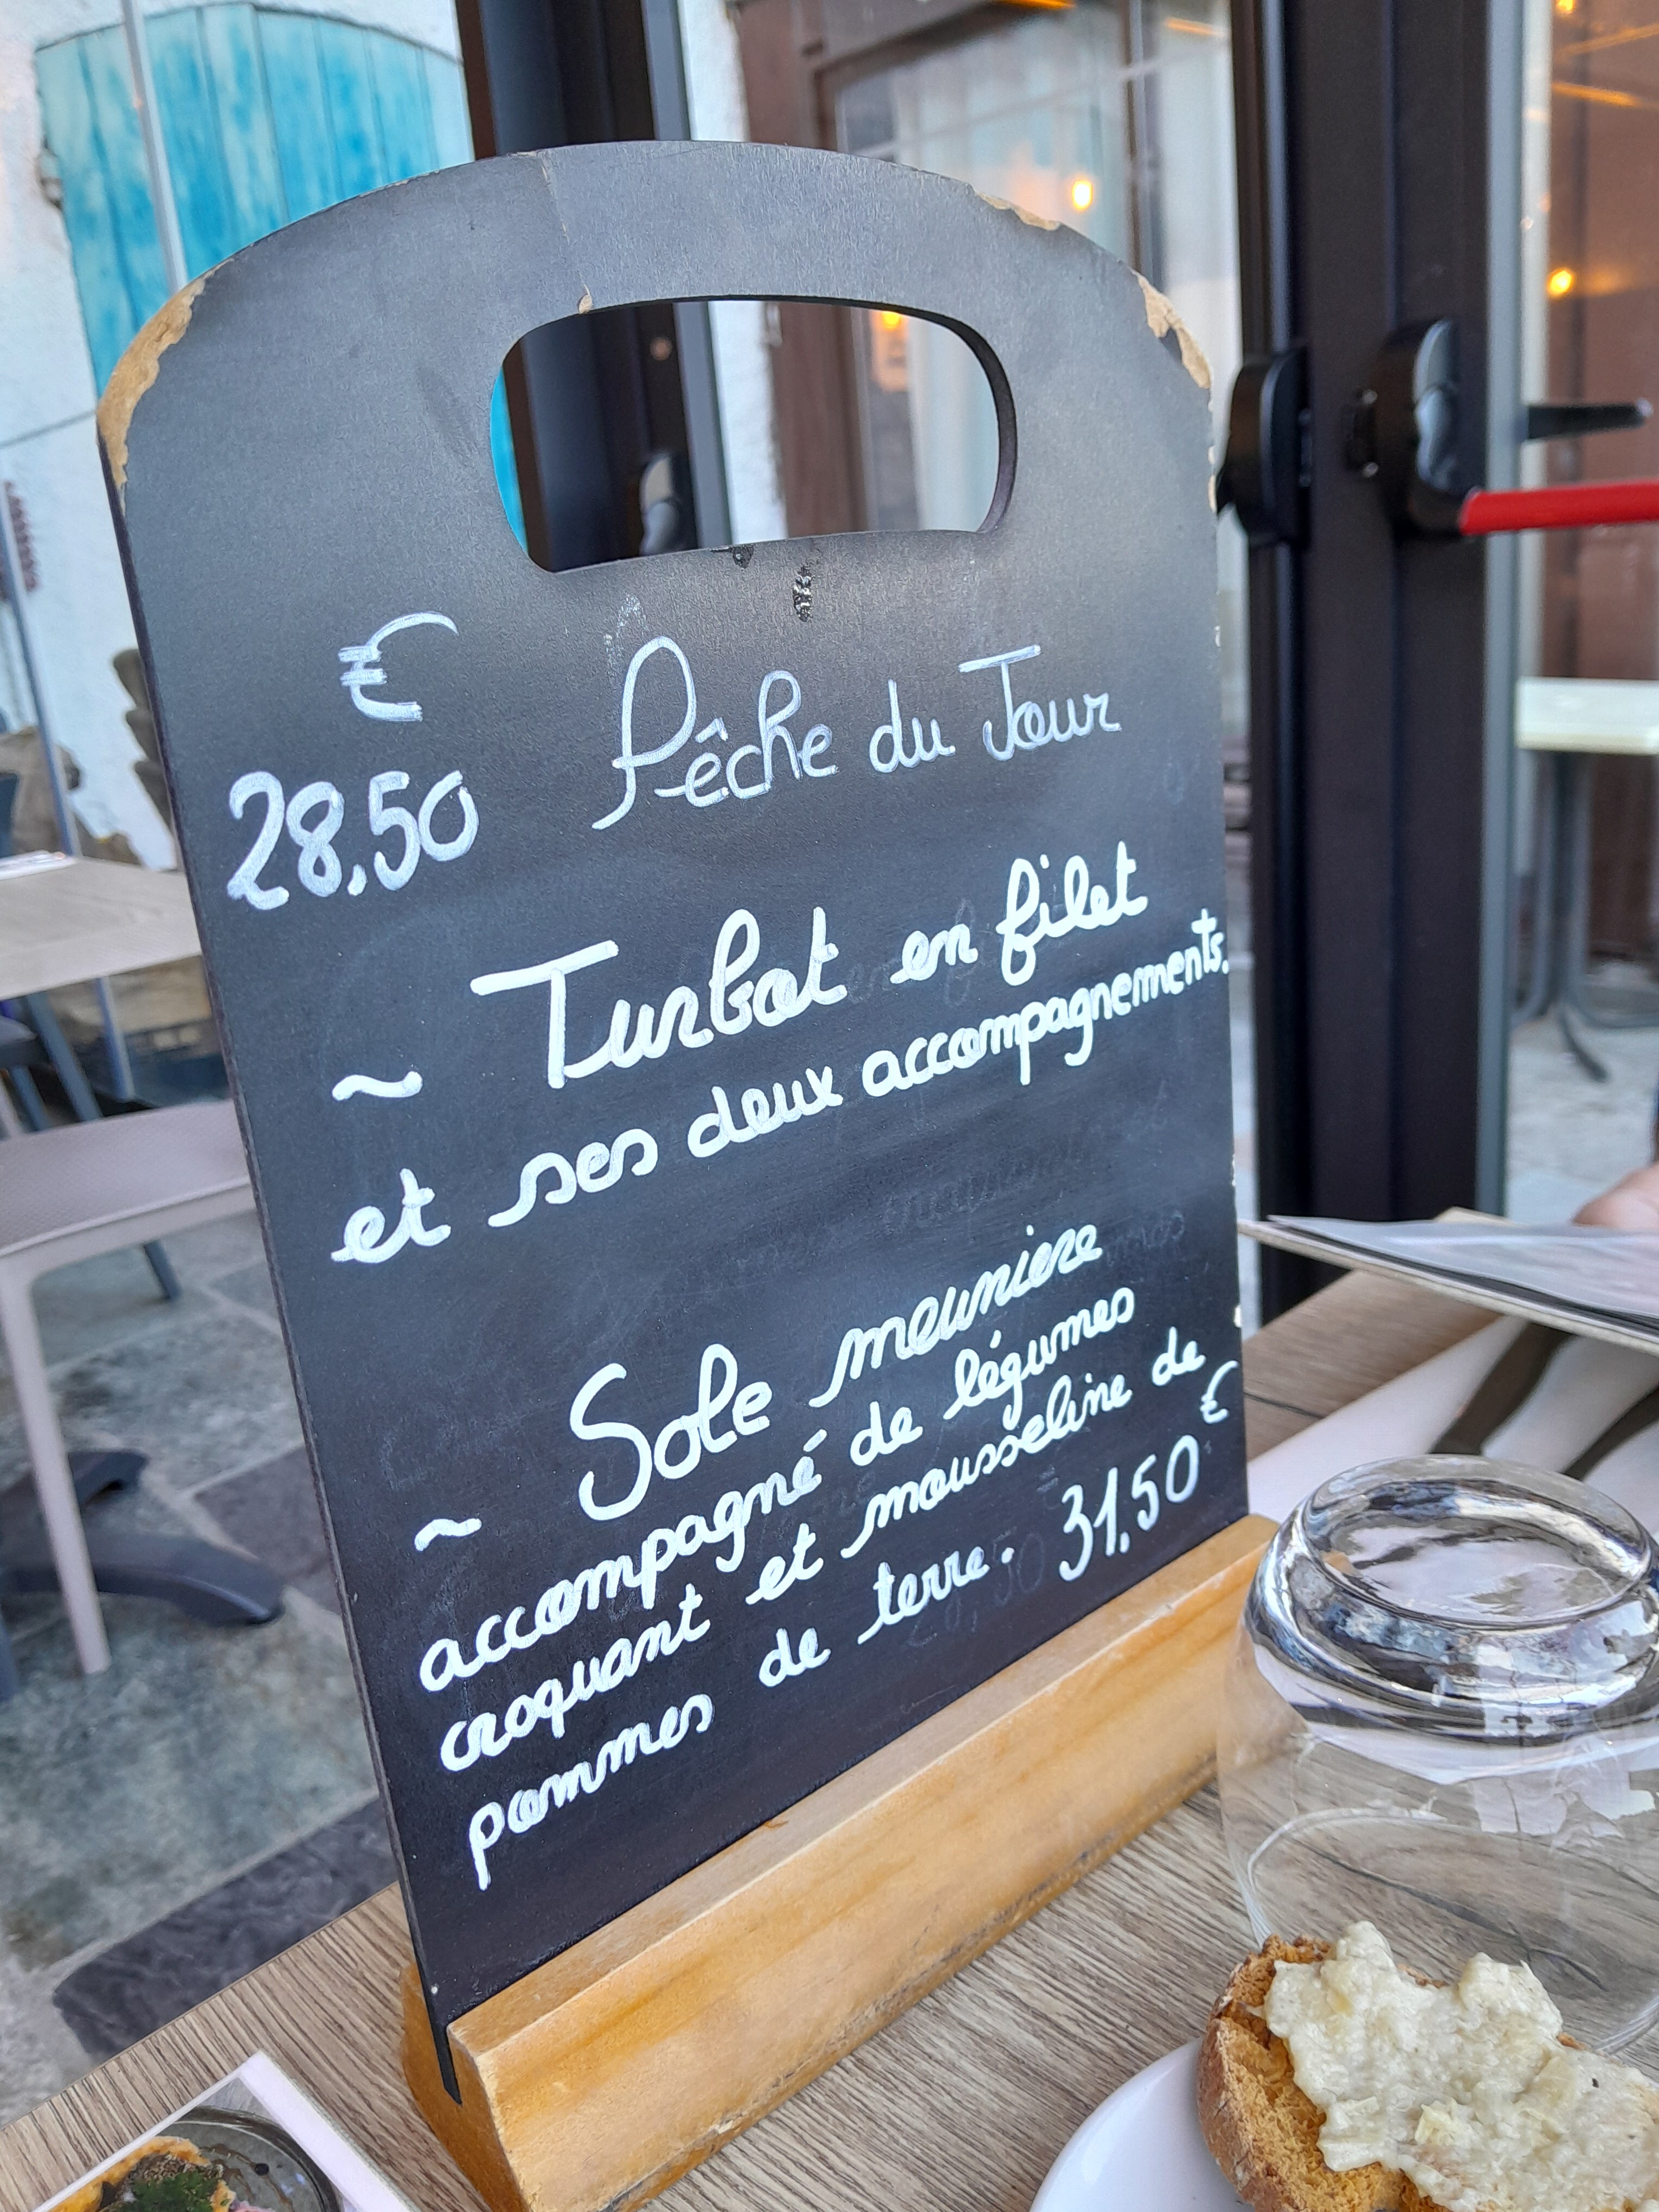 €
28.50
Pêche du Jour
~ Turbot en filet
et ses deux accompagnements.
~ Sole meuniere
accompagné de légumes
croquant et mousseline de
pommes de terre. 31.50 €